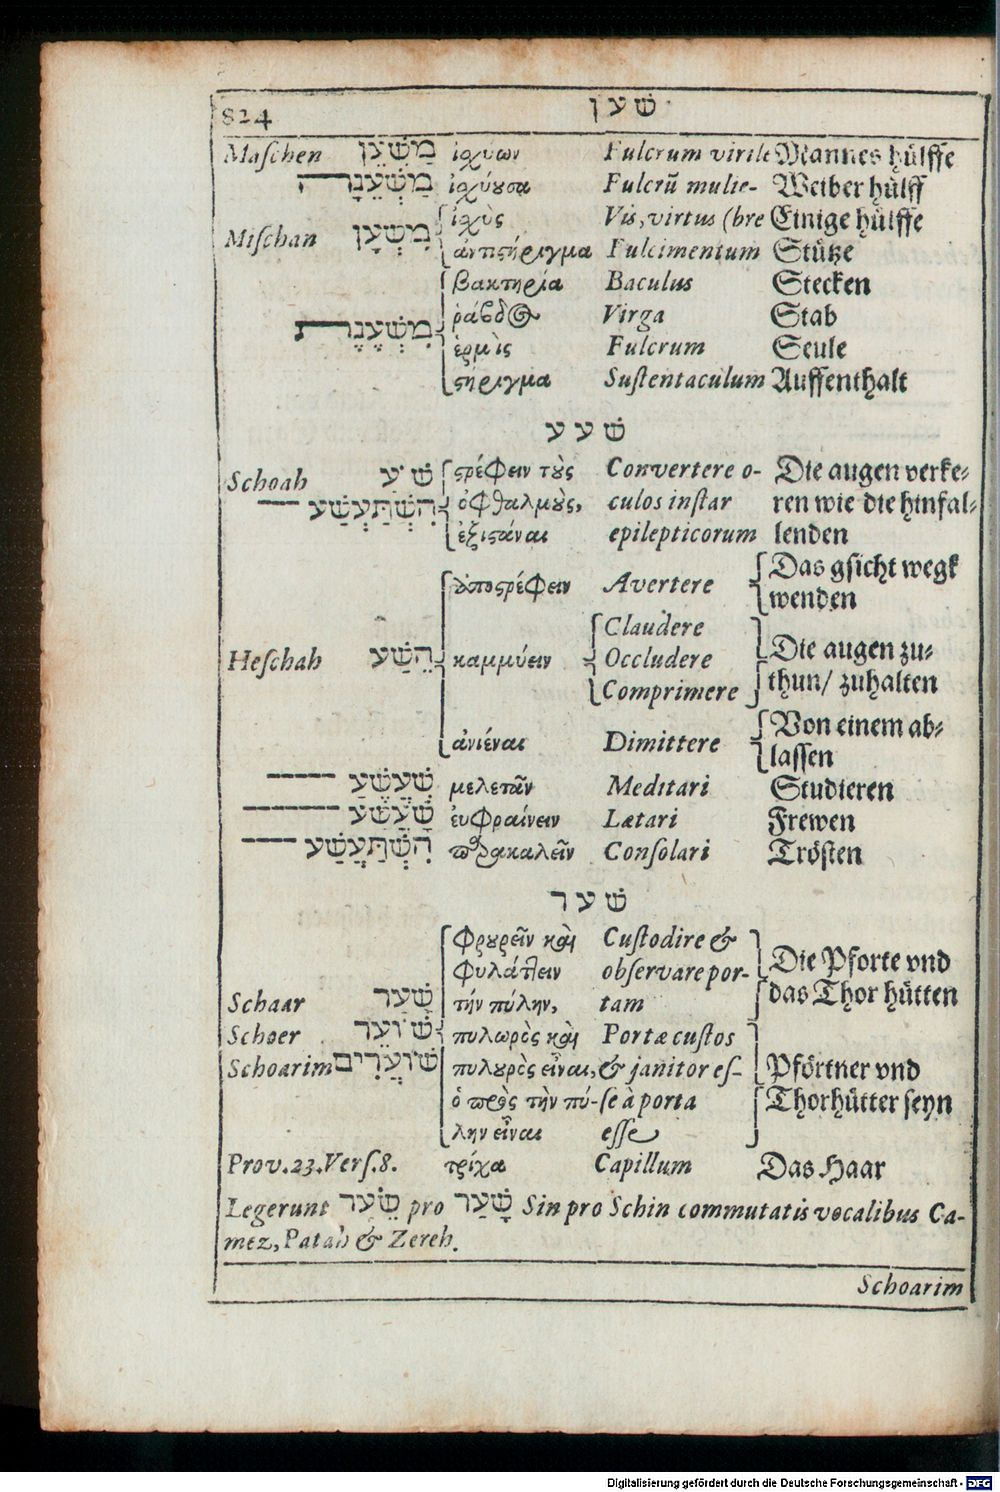 824 שׁ ע ן
Maſchen מַשְׁעֵן ἰσχύων Fulcrum virile Mannes hülffe
מַשְׁעֵנָה ἰσχύουσα Fulcrũ mulie- Weiber hülff
ἰσχὺς Vis, virtus (bre Einige hülffe
Miſchan מִשְׁעָן ἀντιστήριγμα Fulcimentum Stütze
βακτηρία Baculus Stecken
ῥάβδος Virga Stab
מִשְׁעֶנֶת ἑρμὶς Fulcrum Seule
στήριγμα Suſtentaculum Auffenthalt
שׁ ע ע
Schoah שֹׁעַ στρέφειν τοὺς Convertere o- Die augen verke-
הִשְׁתַּעְשַׁע ὀφθαλμοὺς, culos inſtar ren wie die hinfal-
ἐξιστάναι epilepticorum lenden
ἀποστρέφειν Avertere Das gſicht wegk
wenden
Claudere
Heſchah הֵשַׁע καμμύειν Occludere Die augen zu-
Comprimere thun/ zuhalten
ἀνιέναι Dimittere Von einem ab-
laſſen
שִׁעֲשַׁע μελετᾶν Meditari Studieren
שָׁעֲשַׁע ἐυφραίνειν Lætari Frewen
הִשְׁתַּעֲשַׁע παρακαλεῖν Conſolari Tröſten
שׁ ע ר
φρουρεῖν καὶ Cuſtodire &
φυλάττειν obſervare por- Die Pforte vnd
Schaar שַׁעַר τήν πύλην, tam das Thor hütten
Schoer שׁוֹעֵר πυλωρὸς καὶ Portæ cuſtos
Schoarim שׁוֹעֲרִים πυλουρὸς εἶναι, & janitor eſ- Pförtner vnd
ὁ πρὸς τὴν πύ- ſe à porta Thorhütter ſeyn
λην εἶναι eſſe
Prov. 23. Verſ. 8. τρίχα Capillum Das Haar
Legerunt שֵׂעָר pro שָׁעַר Sin pro Schin commutatis vocalibus Ca-
mez, Patah & Zereh.
Schoarim
Digitalisierung gefördert durch die Deutsche Forschungsgemeinschaft - DFG